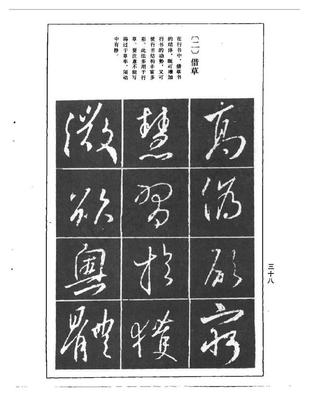 (二)借草
在行书中,借草书
的结体,既可增加
行书的动势,又可
使行书结构丰富多
彩。此法多用于行
草,要注意不能写
得过于草率,须动
中有静
高
偽
欲
窮
慧
習
於
獲
微
欲
奧
體
三十八